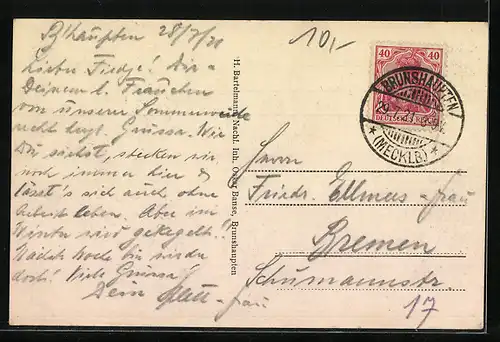 B'haupten 28/7/21
Lieber Fiedje! Dir
Deinem l. Frauchen
von unserer Sommerweide
recht herzl. Grüsse. Wie
Du siehst, stecken wir
noch immer hier &
lässt's sich auch ohne
Arbeit leben. Aber im
Winter wird gekegelt!!
Nächste Woche bin wieder
dort! Viele Grüsse!
Dein
frau
H. Bartelmann Nachf. Inh. Oskar Banse, Brunshaupten
10,-
40 40
DEUTSCHES REICH
BRUNSHAUPTEN
* (MECKLB) *
Herrn
Friedr. Ellmers-frau
Bremen
Schumannstr.
17